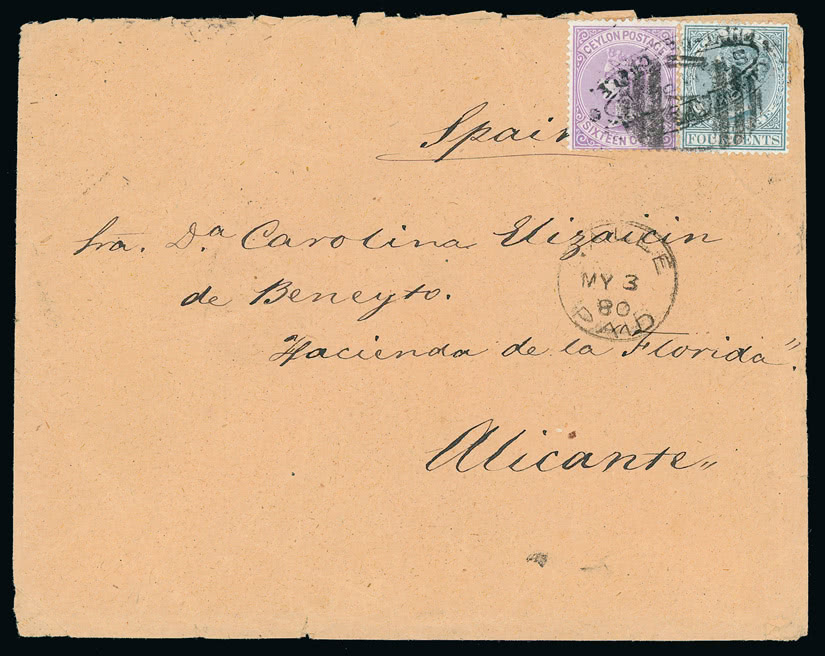 CEYLON POSTAGE
SIXTEEN
FOUR CENTS
Spain
Sra. D.ª Carolina Vizaicin
de Beneyto.
MY 3
80
PAID
Hacienda de la Florida"
Alicante"